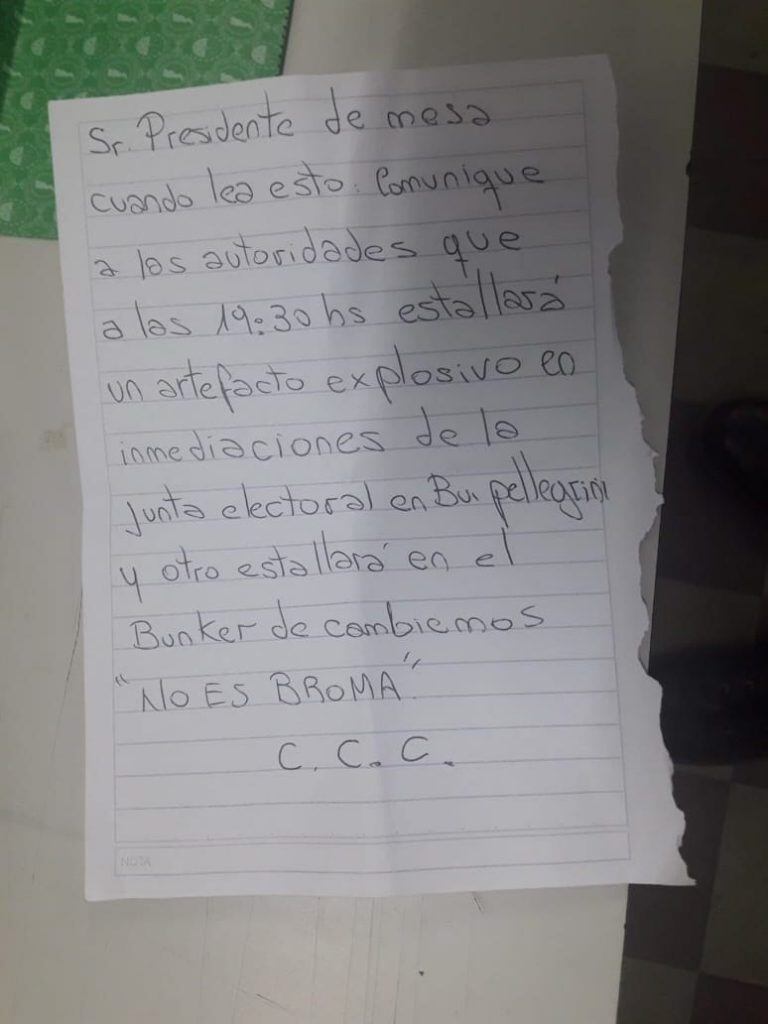 Sr. Presidente de mesa
cuando lea esto. Comunique
a las autoridades que
a las 19:30 hs estallará
un artefacto explosivo en
inmediaciones de la
junta electoral en Bu. pellegrini
y otro estallará en el
Bunker de cambiemos
"NO ES BROMA"
C. C. C.
NOTA